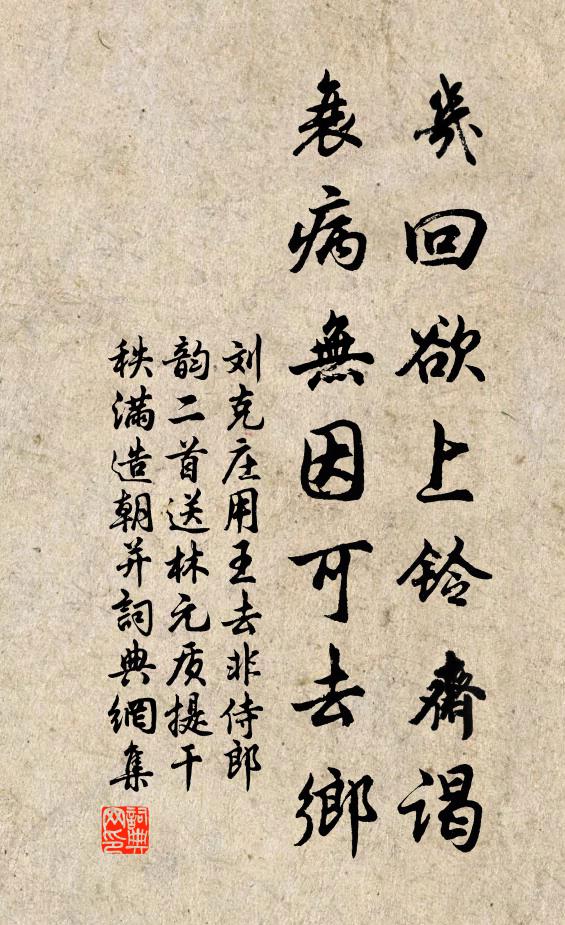 幾回欲上鈴齋謁
衰病無因可去鄉
刘克庄用王去非侍郎
韵二首送林元质提干
秩滿造朝并詞典網集
詞典網印